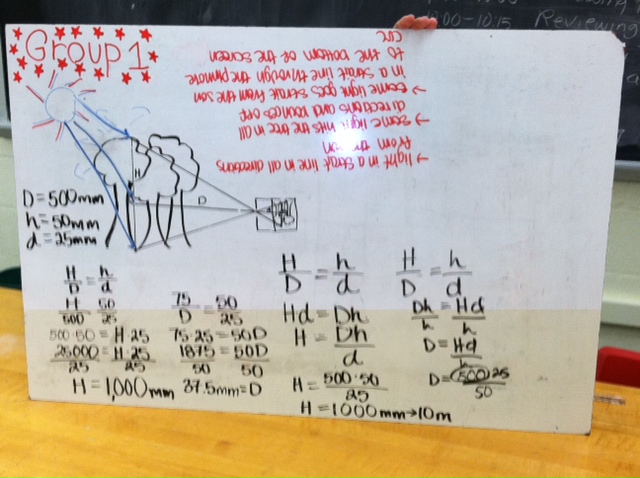 00-10:15 Reviewing
Group 1
→ light in a strat line in all directions
from the son
→ some light hits the tree in all
directions and bounces off
→ some light goes straite from the son
in a strait line through the pinhole
to the bottom of the screen
H
D
D = 500mm
h = 50mm
d = 25mm
H/D = h/d
H/500 50/25
500·50 = H·25
25000/25 = H·25/25
H = 1,000mm
75/D = 50/25
75·25 = 50D
1875/50 = 50D/50
37.5mm = D
H/D = h/d
Hd = Dh
H = Dh/d
H = 500·50/25
H = 1000mm → 10m
H/D = h/d
Dh/h = Hd/h
D = Hd/h
D = (500)25/50